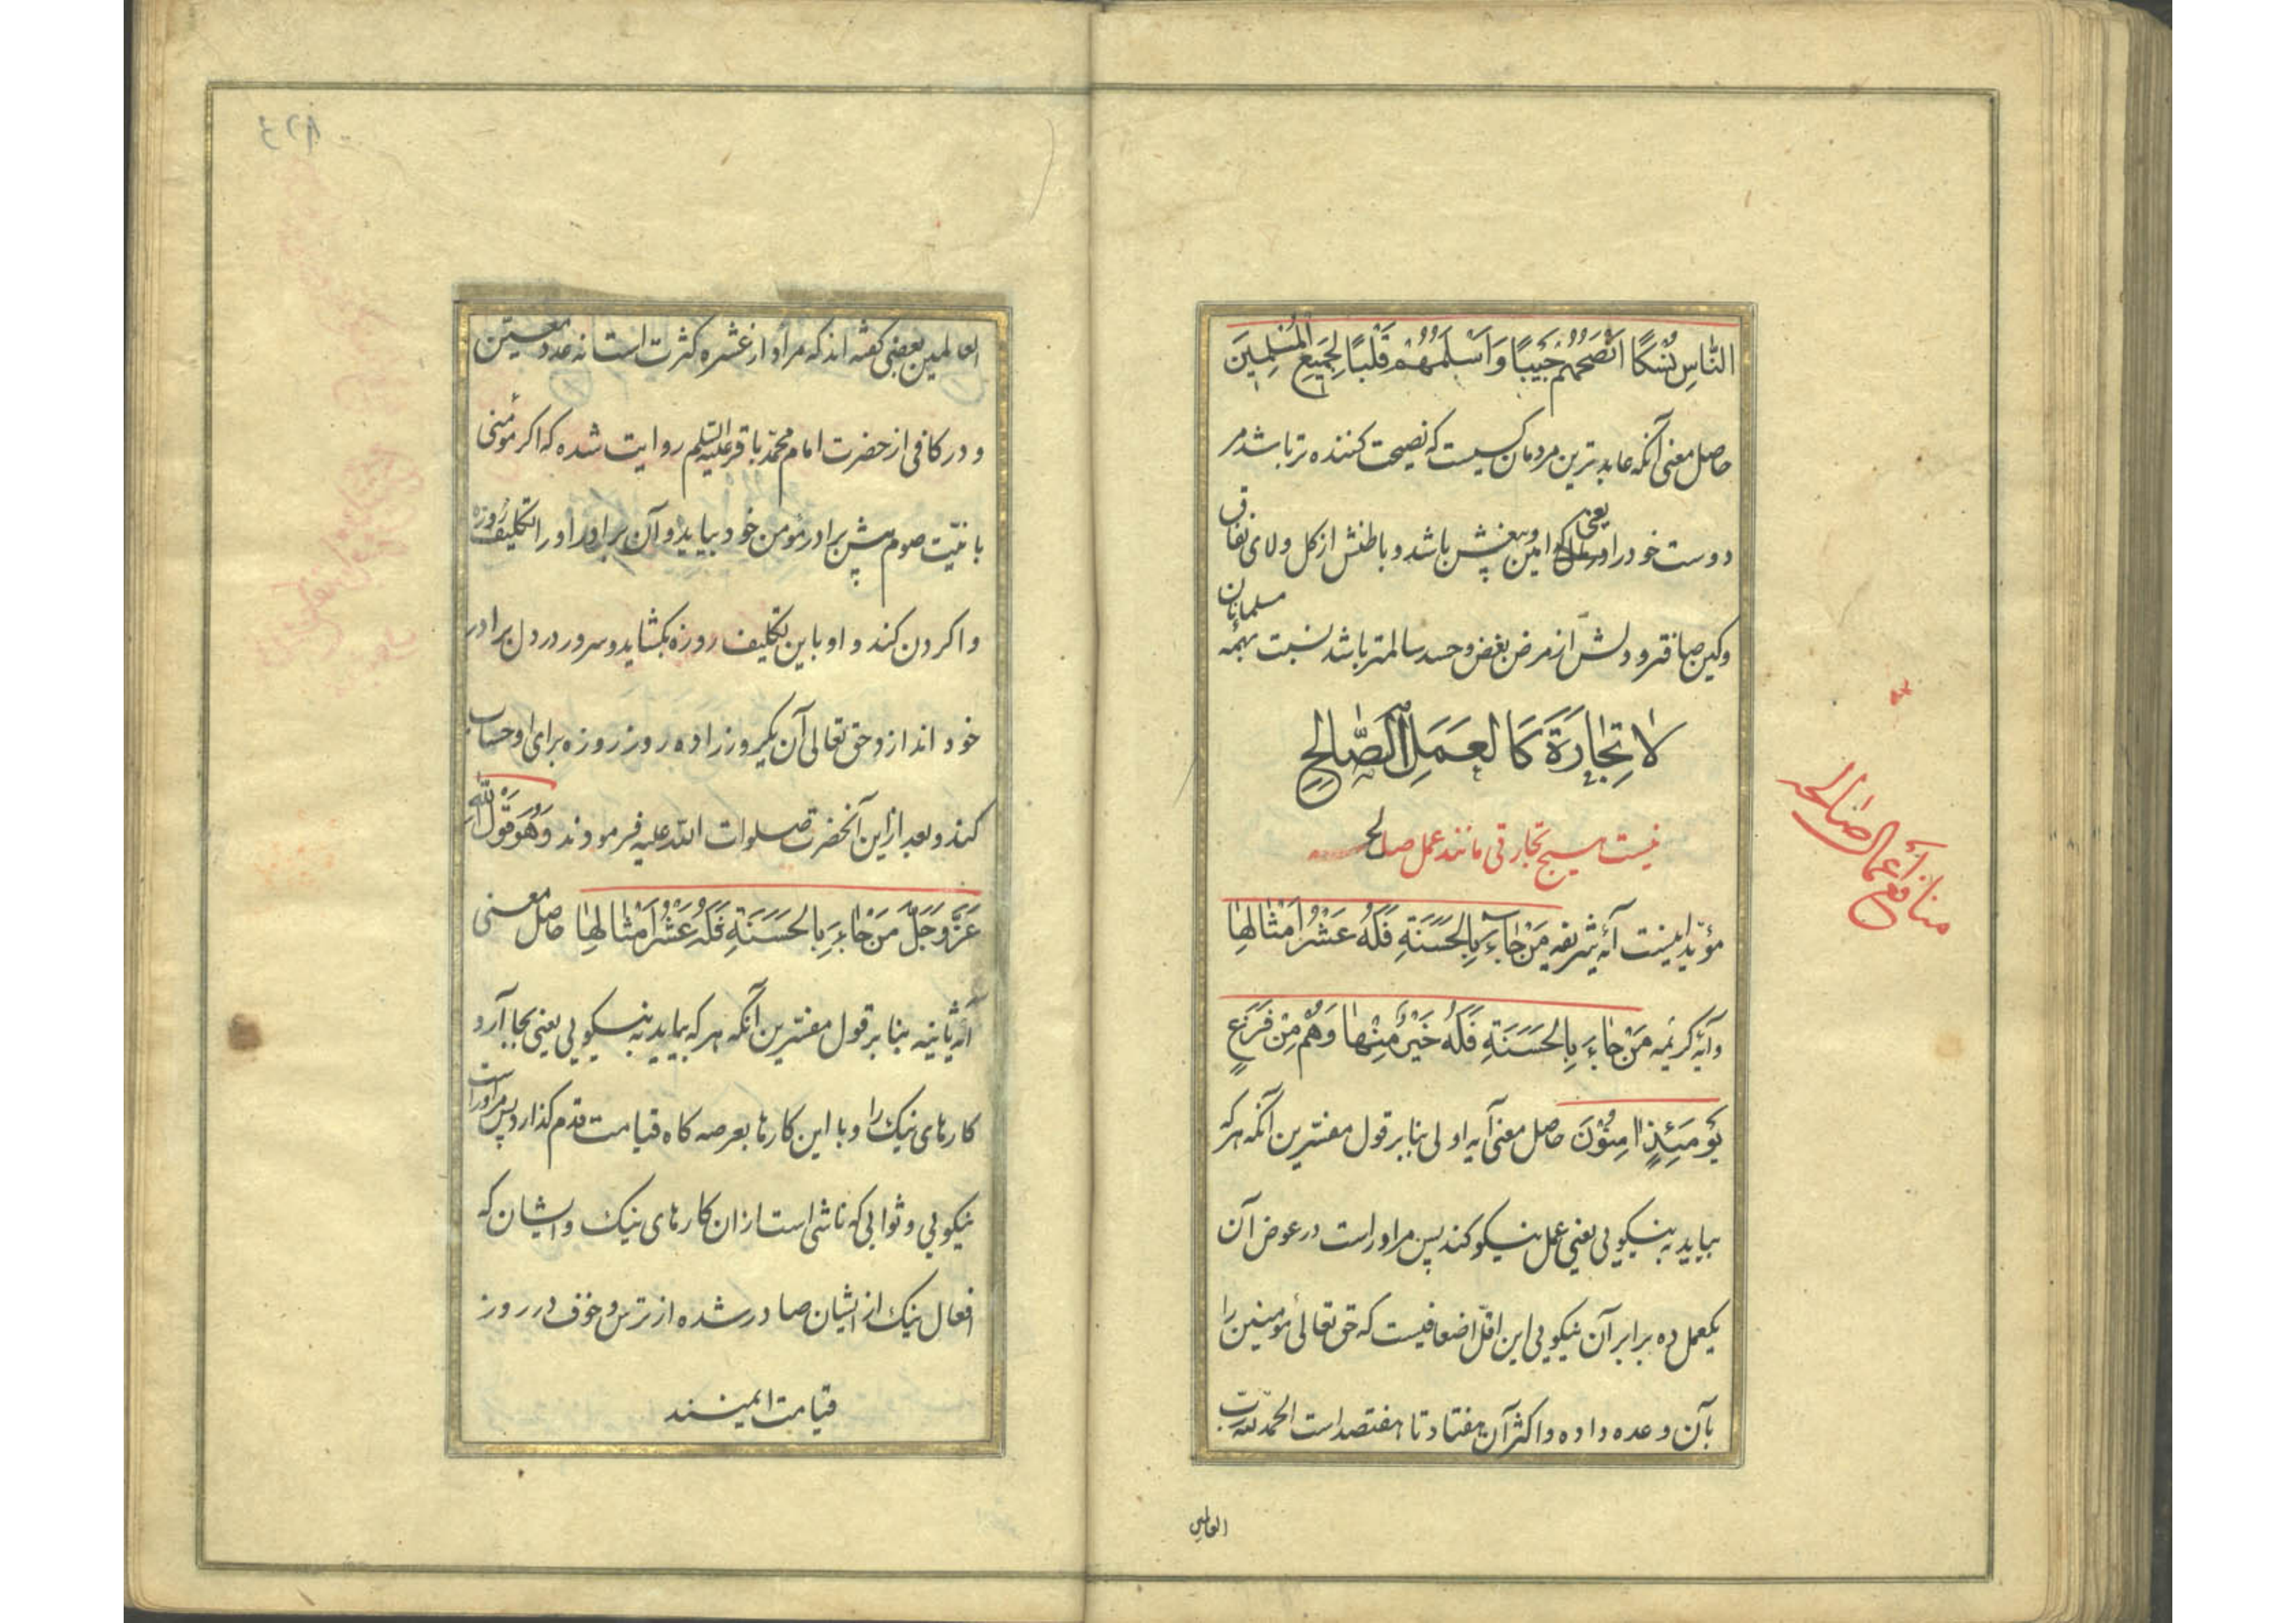 النَّاسِ نُسُكًا اَنْصَحُهُمْ حَبِيبًا وَاَسْلَمُهُمْ قَلْبًا لِجَمِيعِ الْمُسْلِمِينَ
حاصل معنی آنکه عابدترین مردمان کسیست که نصیحت کننده تر باشد مر
دوست خود را یعنی امین وبیغش باشد و باطنش از کل ولای نفاق
وکین صافتر و دلش از مرض بغض و حسد سالمتر باشد نسبت بهمه مسلمانان
لَا تِجَارَةَ كَالْعَمَلِ الصَّالِحِ
نیست هیچ تجارتی مانند عمل صالح
منافع أعمال صالحه
مؤید اینست آیه شریفه مَنْ جَاءَ بِالْحَسَنَةِ فَلَهُ عَشْرُ اَمْثَالِهَا
وآیه کریمه مَنْ جَاءَ بِالْحَسَنَةِ فَلَهُ خَيْرٌ مِنْهَا وَهُمْ مِنْ فَزَعٍ
يَوْمَئِذٍ امِنُوْنَ حاصل معنی آیه اولی بنا بر قول مفسرین آنکه هر که
بیاید به نیکویی یعنی عمل نیکو کند پس مر اوراست در عوض آن
یکعمل ده برابر آن نیکویی این اقل اضعافیست که حق تعالی مؤمنین را
بآن وعده داده واکثر آن هفتاد تا هفتصد است الحمد لله رب
العالمین
العالمین بعضی کفته اند که مراد از عشره کثرت است نه عدد معین
و در کافی از حضرت امام محمد باقر علیه السلم روایت شده که اکر مؤمنی
با نیت صوم پیش برادر مؤمن خود بیاید و آن برادر او را تکلیف روزه
واکردن کند و او باین تکلیف روزه بکشاید و سرور در دل برادر
خود اندازد حق تعالی آن یکروز را ده روز روزه برای او حساب
کند و بعد از این آنحضرت صلوات الله علیه فرمودند وَهُوَ قَوْلُ اللّٰهِ
عَزَّ وَجَلَّ مَنْ جَاءَ بِالْحَسَنَةِ فَلَهُ عَشْرُ اَمْثَالِهَا حاصل معنی
آیه ثانیه بنا بر قول مفسرین آنکه هر که بیاید به نیکویی یعنی بجا آرد
کارهای نیک را و با این کارها بعرصه کاه قیامت قدم کذارد پس مر اوراست
نیکویی و ثوابی که ناشی است از ان کارهای نیک و ایشان که
افعال نیک از ایشان صادر شده از ترس و خوف در روز
قیامت ایمنند